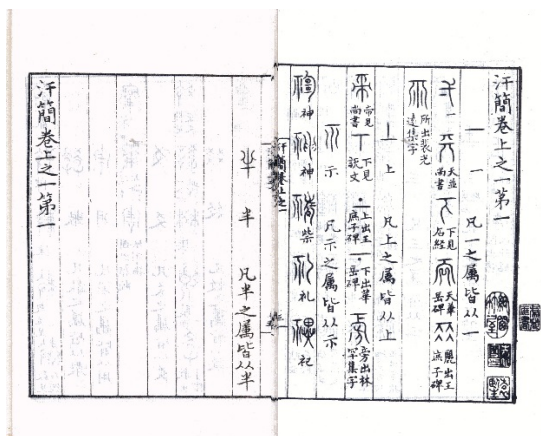 汗簡卷上之一第一
一 一 凡一之屬皆从一
一 天並尚書 下見名經 天華岳碑 麗出王庶子碑
所出裴光遠集字
丄 上 凡上之屬皆从上
帝見尚書 丅 下見說文 上出王庶子碑 下出華岳碑 旁出林罕集字
示 凡示之屬皆从示
神 神 柴 礼 祀
汗簡卷上之一
半 凡半之屬皆从半
汗簡卷上之一第一